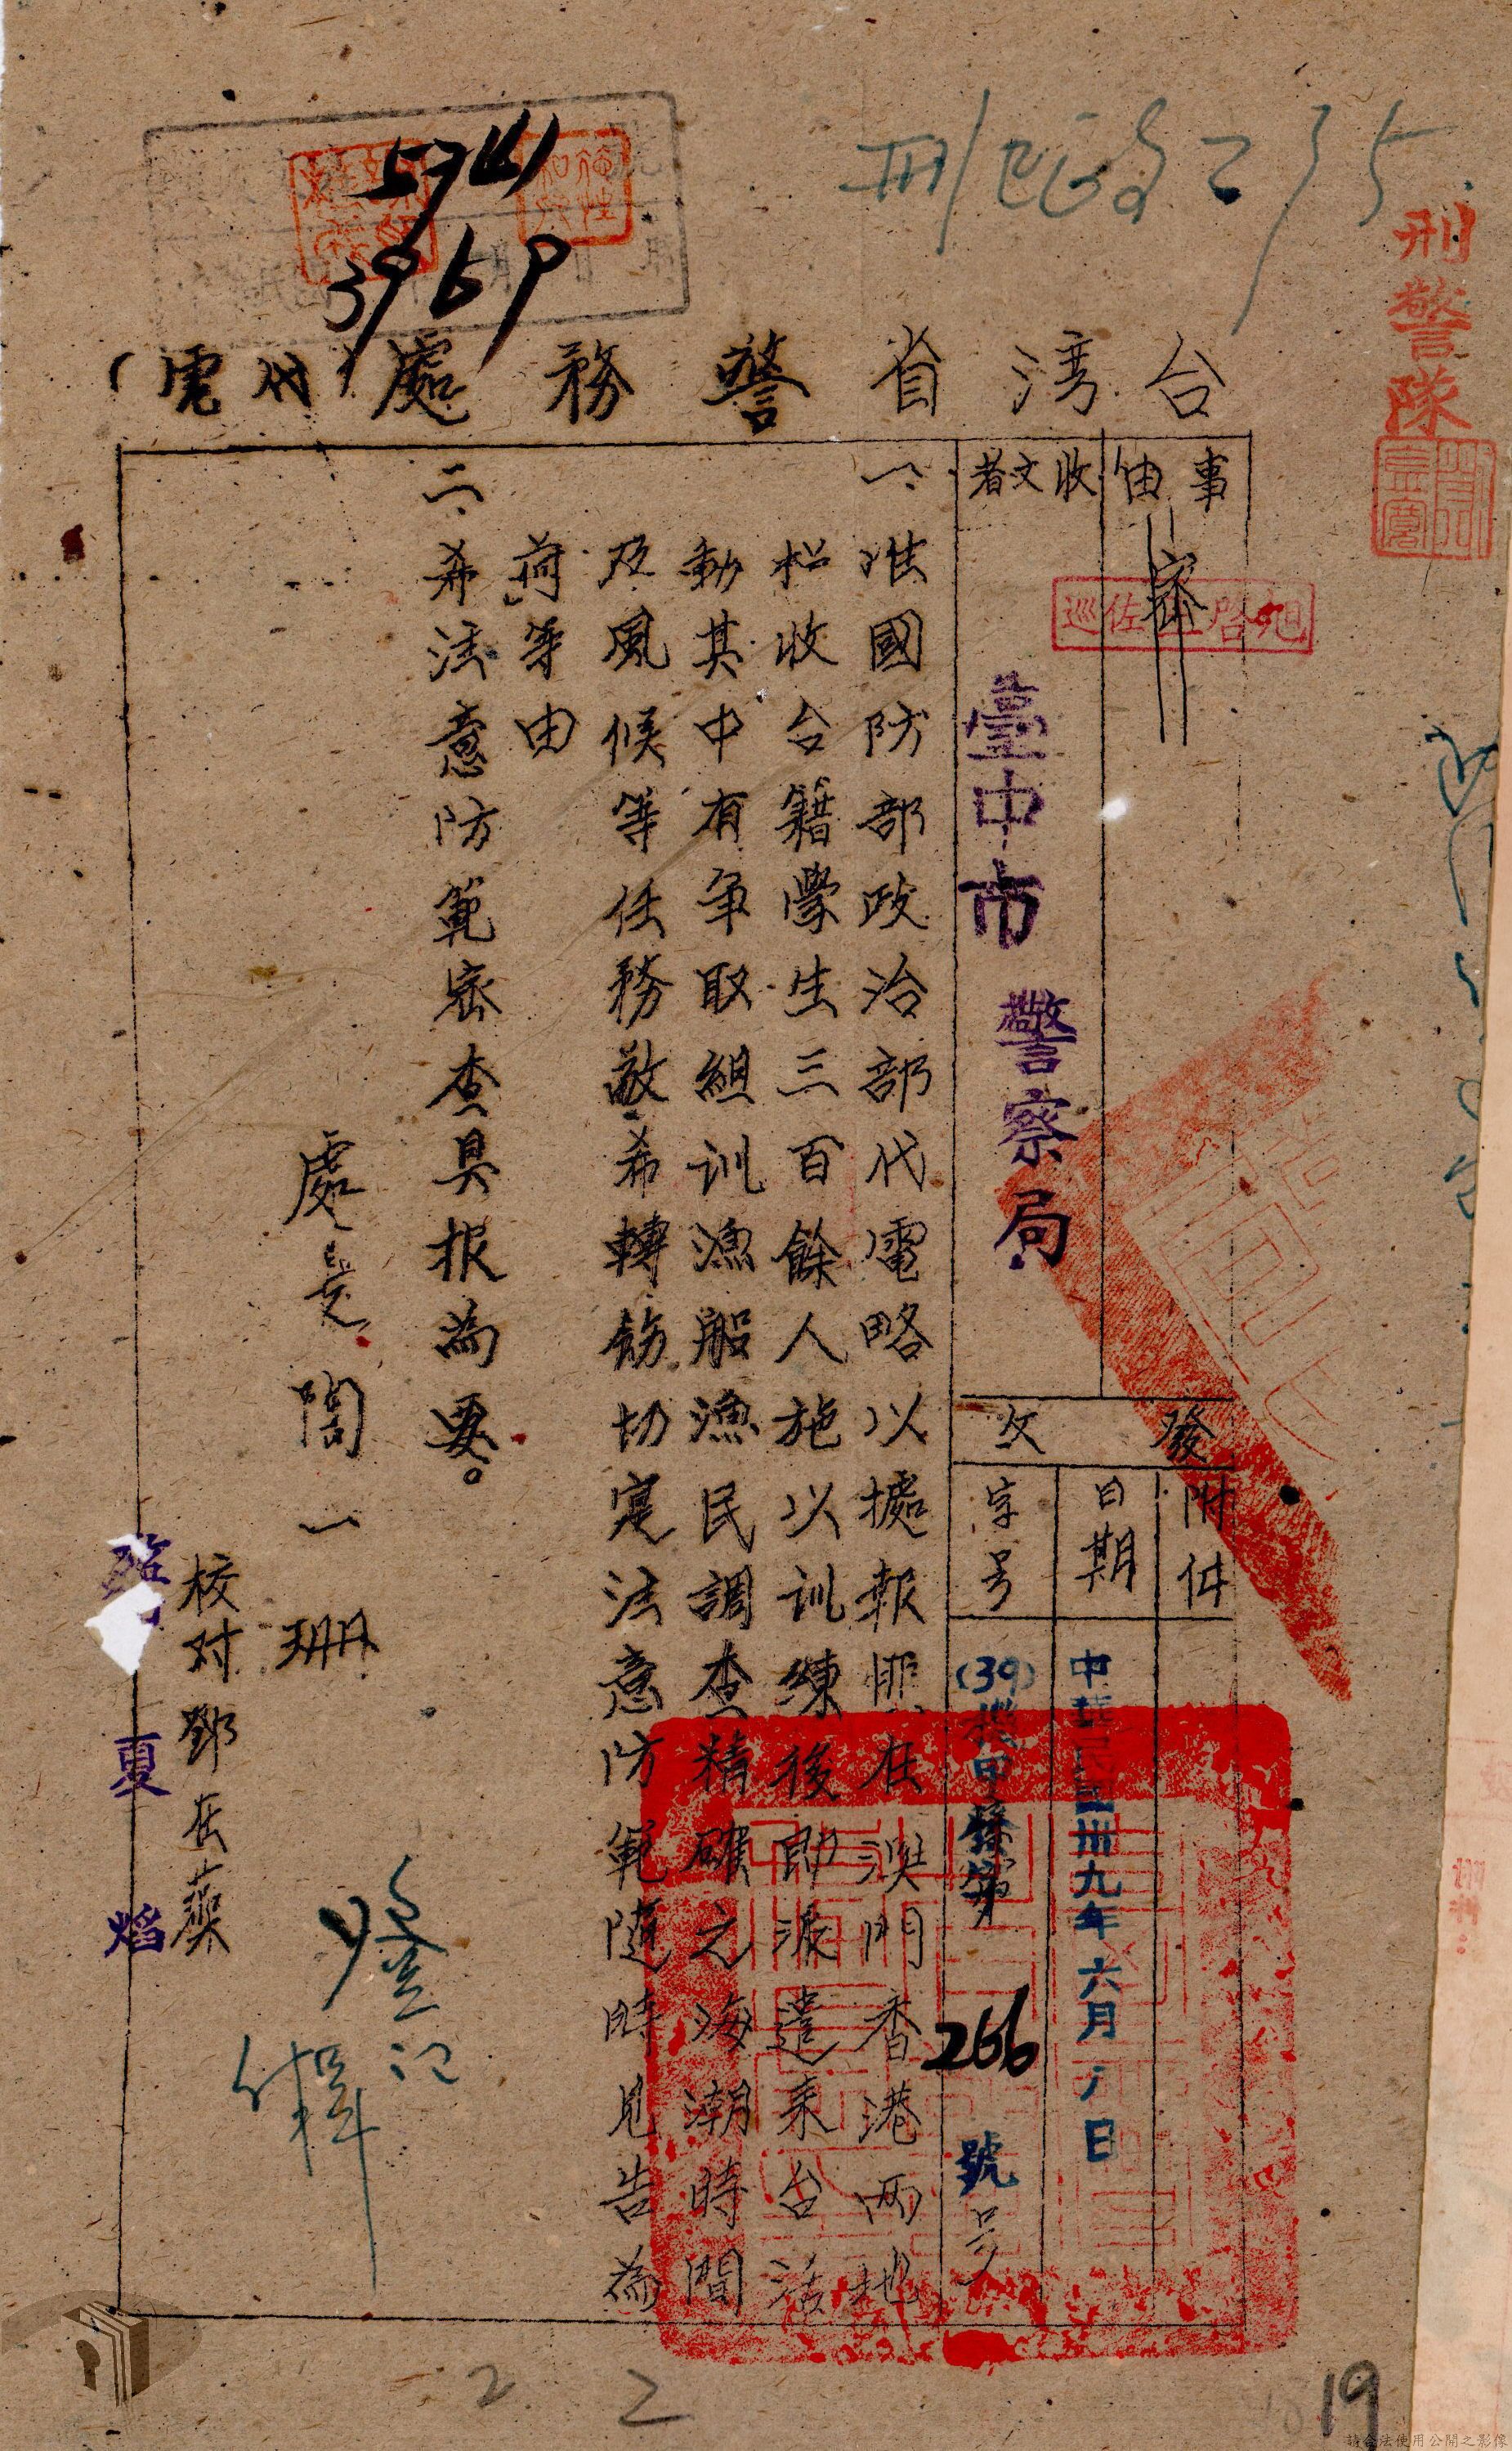 刑警隊
5741
3969
台湾省警務處（代電）
事由
密
收文者
臺中市警察局
發文
附件
日期
中華民國卅九年六月八日
字号
266號
号
一、准國防部政治部代電略以據報匪在澳門香港两地
松收台籍學生三百餘人施以训練後即派遣来台活
動其中有争取組训漁船漁民調查精確之海潮時間
及風候等任務敬希轉飭切寔注意防範隨時見告為
荷」等由
二、希注意防範密查具报為要。
處長 陶一珊
校对鄧
夏焰
登记
2
2
19
請合法使用公開之影像